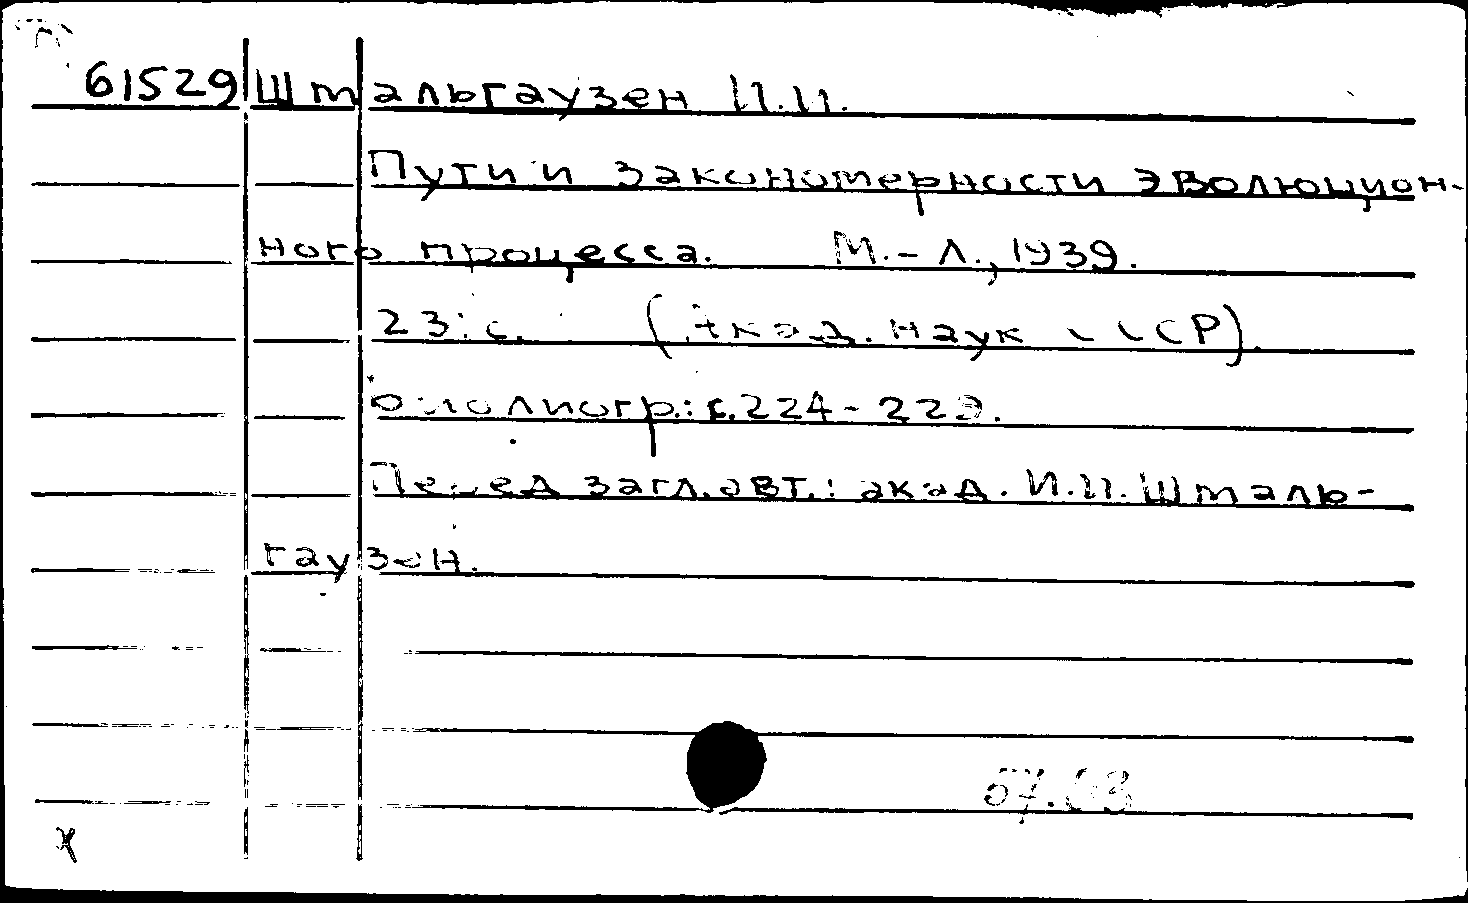 61529 Штальгаузен И.И.
Пути и закономерности эволюцион-
ного процесса. М.-Л., 1939.
с. (Акад. наук СССР).
Библиогр.: с. 224-229.
Перед загл. авт.: акад. И.И. Шталь-
гаузен.
57.03